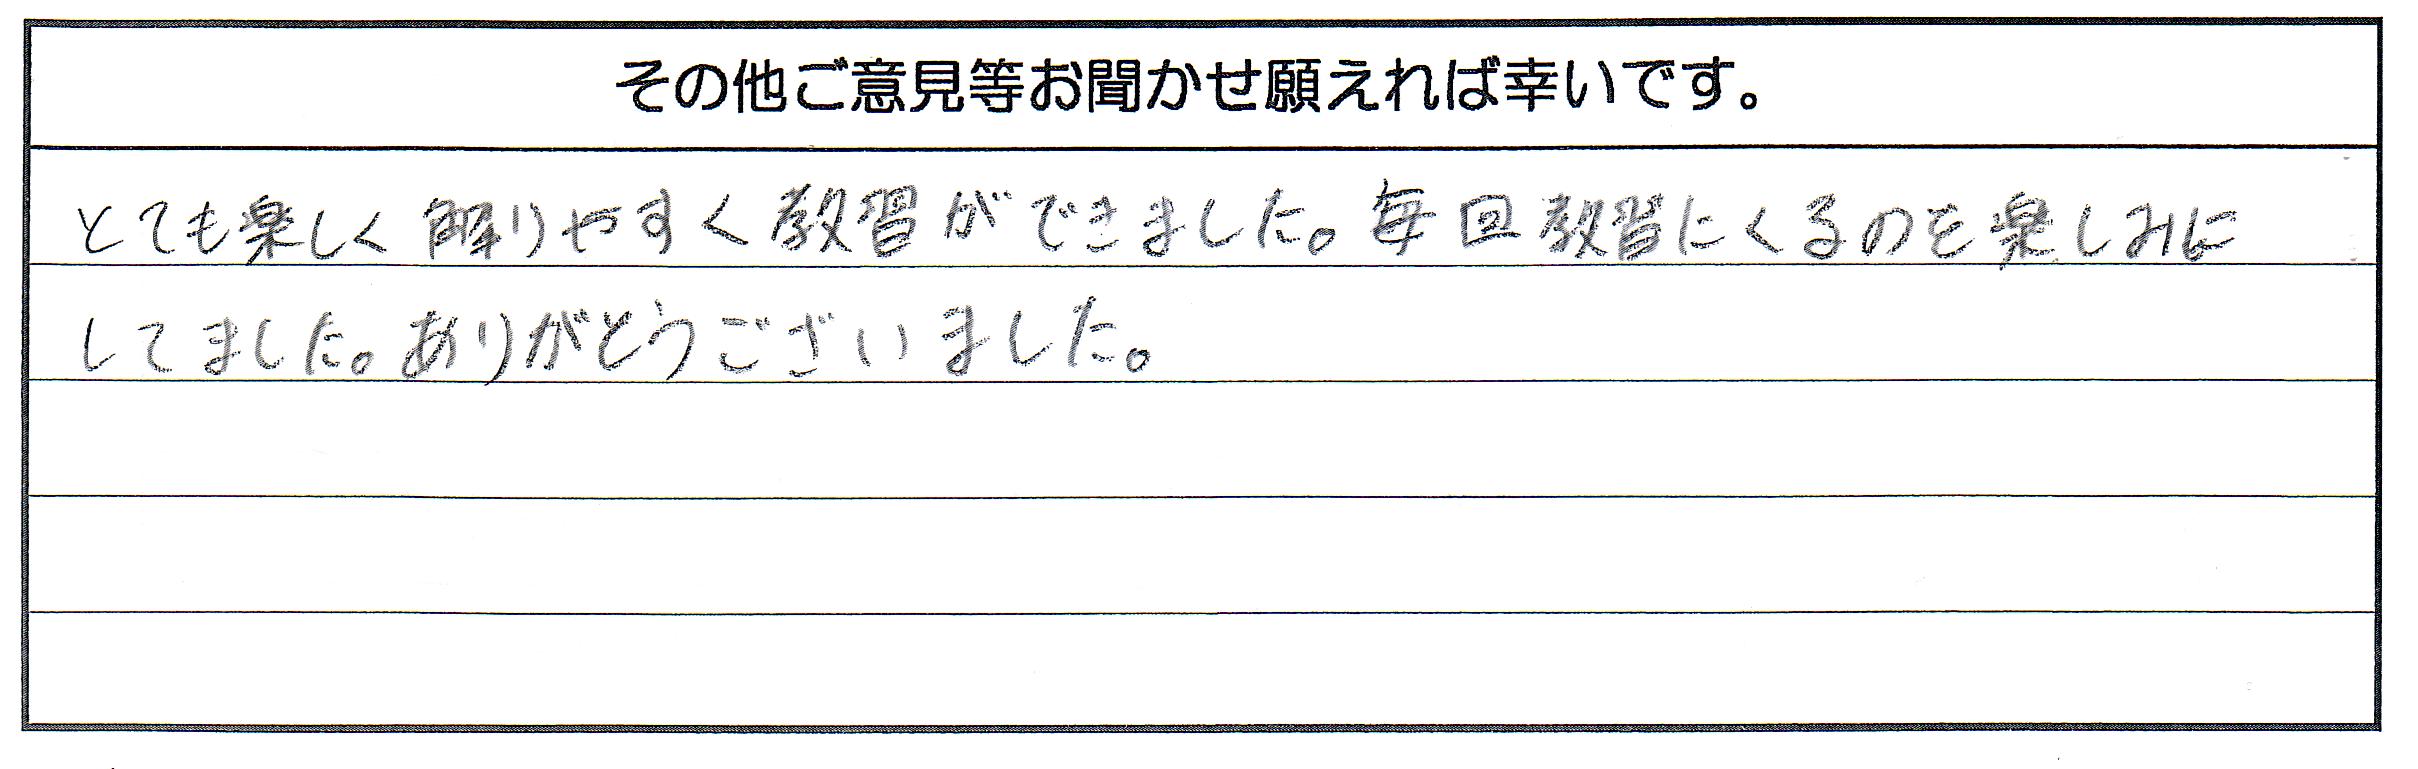 その他ご意見等お聞かせ願えれば幸いです。
とても楽しく解りやすく教習ができました。毎回教習にくるのを楽しみに
してました。ありがとうございました。